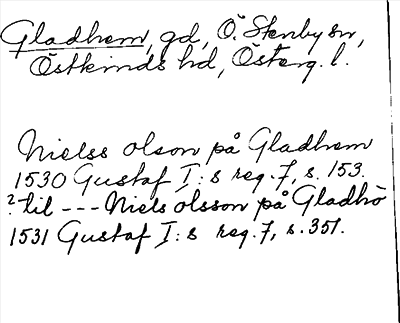 Gladhem, gd, Ö. Stenby sn,
Östkinds hd, Österg. l.
Nielss olson på Gladhem
1530 Gustaf I:s reg. 7, s. 153.
? til --- Niels olsson på Gladhö
1531 Gustaf I:s reg. 7, s. 351.